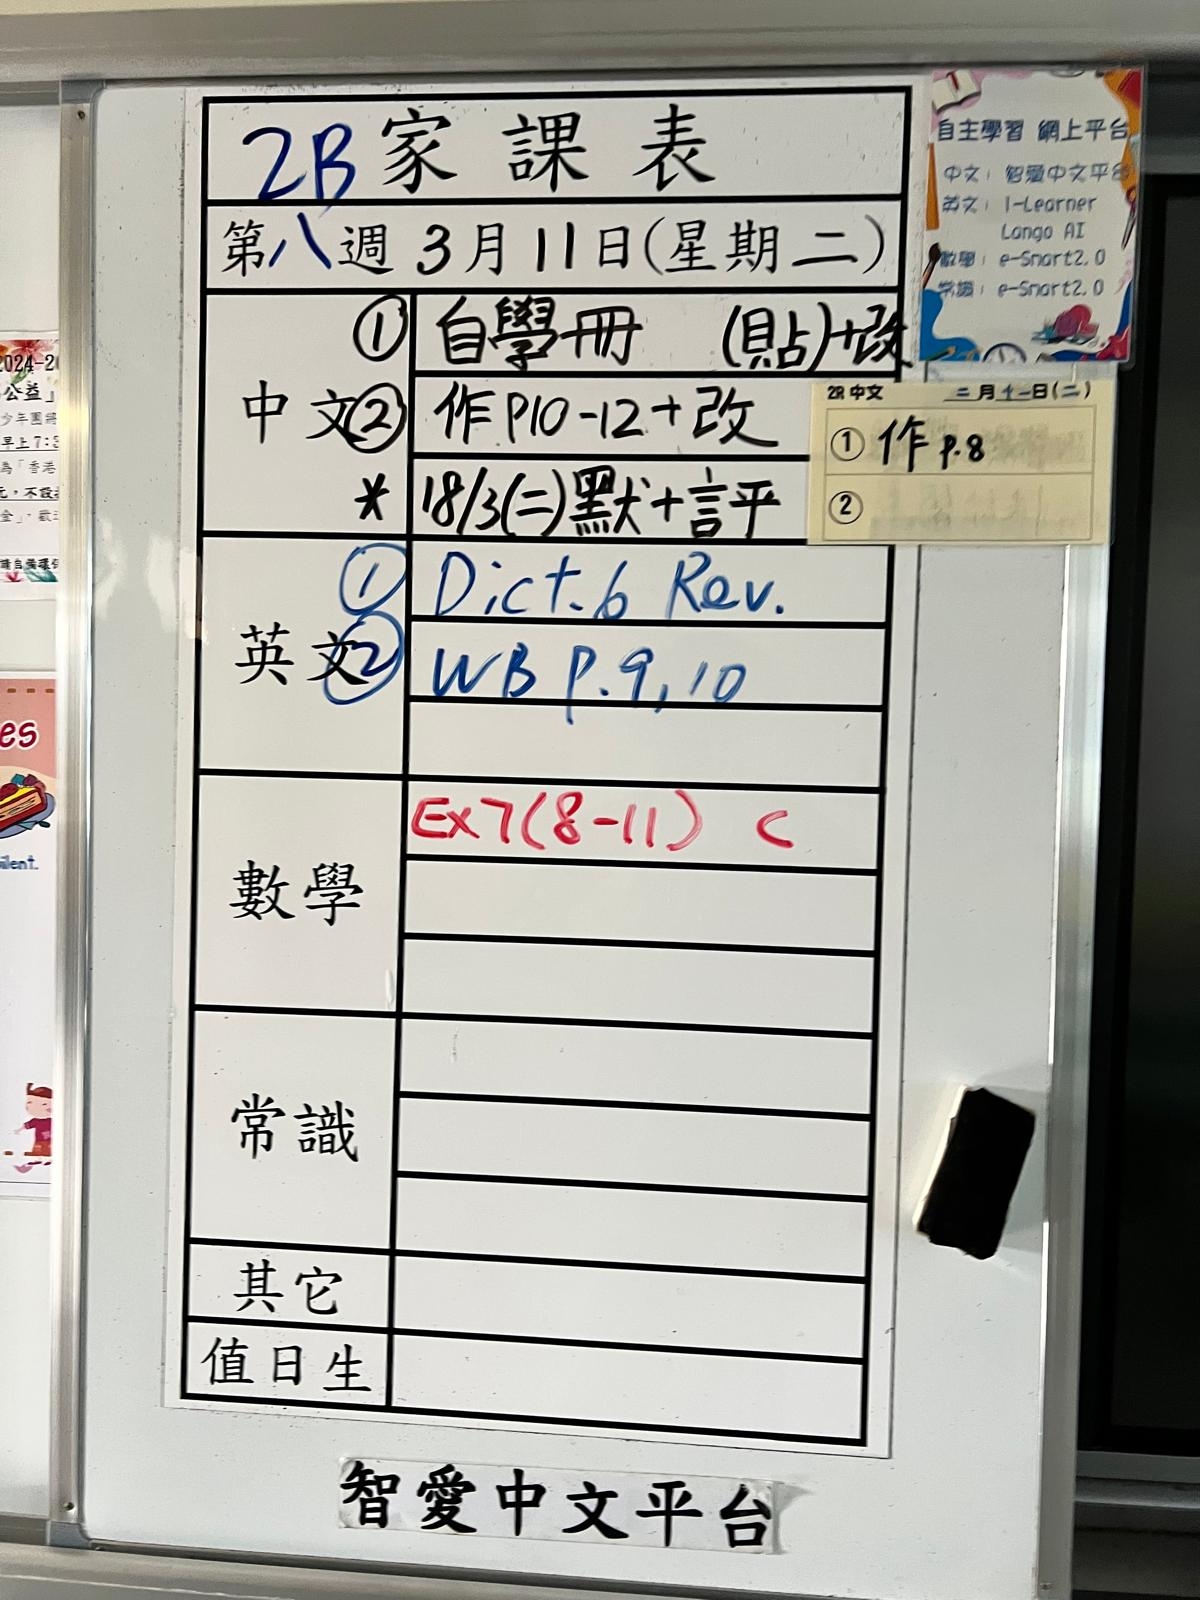 2B家課表
第八週 3月11日(星期二)
中文
① 自學冊 (貼)+改
② 作P10-12+改
* 18/3(二)默+評
英文
① Dict.6 Rev.
② WB P.9,10
數學
Ex7(8-11) C
常識
其它
值日生
智愛中文平台
自主學習 網上平台
中文: 智愛中文平台
英文: I-Learner
Lango AI
數學: e-Smart2.0
常識: e-Smart2.0
2R 中文 二月十一日(二)
① 作 p.8
②
2024-2
公益」
少年團將
早上7:3
為「香港
元,不設
金」,歡
請自備環保
es
ilent.